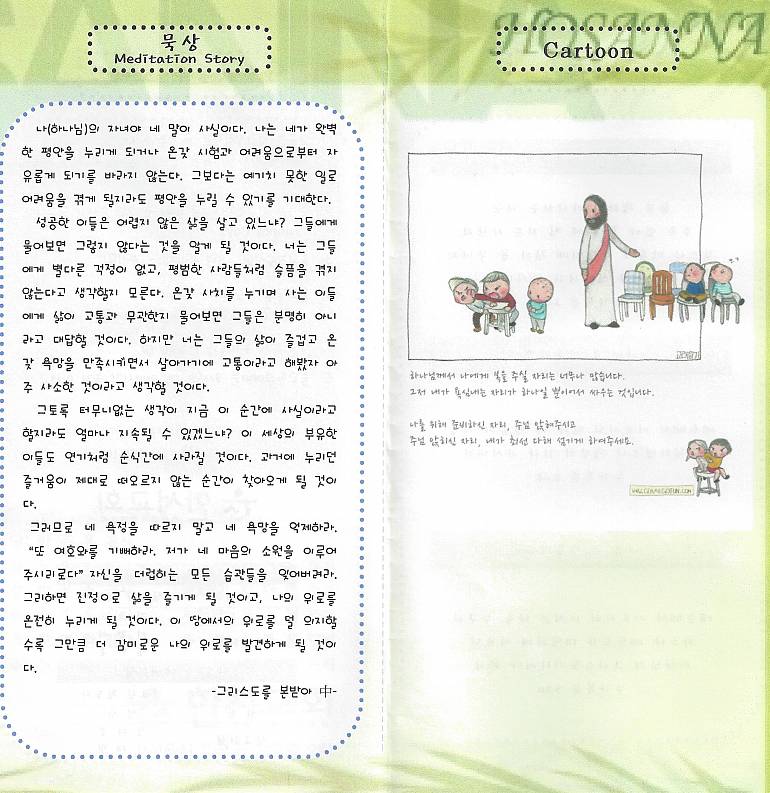 묵상
Meditation Story
나(하나님)의 자녀야 네 말이 사실이다. 나는 네가 완벽
한 평안을 누리게 되거나 온갖 시험과 어려움으로부터 자
유롭게 되기를 바라지 않는다. 그보다는 예기치 못한 일로
어려움을 겪게 될지라도 평안을 누릴 수 있기를 기대한다.
성공한 이들은 어렵지 않은 삶을 살고 있느냐? 그들에게
물어보면 그렇지 않다는 것을 알게 될 것이다. 너는 그들
에게 별다른 걱정이 없고, 평범한 사람들처럼 슬픔을 겪지
않는다고 생각할지 모른다. 온갖 사치를 누기며 사는 이들
에게 삶이 고통과 무관한지 물어보면 그들은 분명히 아니
라고 대답할 것이다. 하지만 너는 그들의 삶이 즐겁고 온
갖 욕망을 만족시키면서 살아가기에 고통이라고 해봤자 아
주 사소한 것이라고 생각할 것이다.
그토록 터무니없는 생각이 지금 이 순간에 사실이라고
할지라도 얼마나 지속될 수 있겠느냐? 이 세상의 부유한
이들도 연기처럼 순식간에 사라질 것이다. 과거에 누리던
즐거움이 제대로 떠오르지 않는 순간이 찾아오게 될 것이
다.
그러므로 네 욕정을 따르지 말고 네 욕망을 억제하라.
"또 여호와를 기뻐하라. 저가 네 마음의 소원을 이루어
주시리로다" 자신을 더럽히는 모든 습관들을 잊어버려라.
그리하면 진정으로 삶을 즐기게 될 것이고, 나의 위로를
온전히 누리게 될 것이다. 이 땅에서의 위로를 덜 의지할
수록 그만큼 더 감미로운 나의 위로를 발견하게 될 것이
다.
-그리스도를 본받아 中-
HOSANNA
Cartoon
하나님께서 나에게 복을 주실 자리는 너무나 많습니다.
그저 내가 욕심내는 자리가 하나일 뿐이어서 싸우는 것입니다.
나를 위해 준비하신 자리, 주님 앉혀주시고
주님 앉히신 자리, 내가 최선 다해 섬기게 하여주세요.